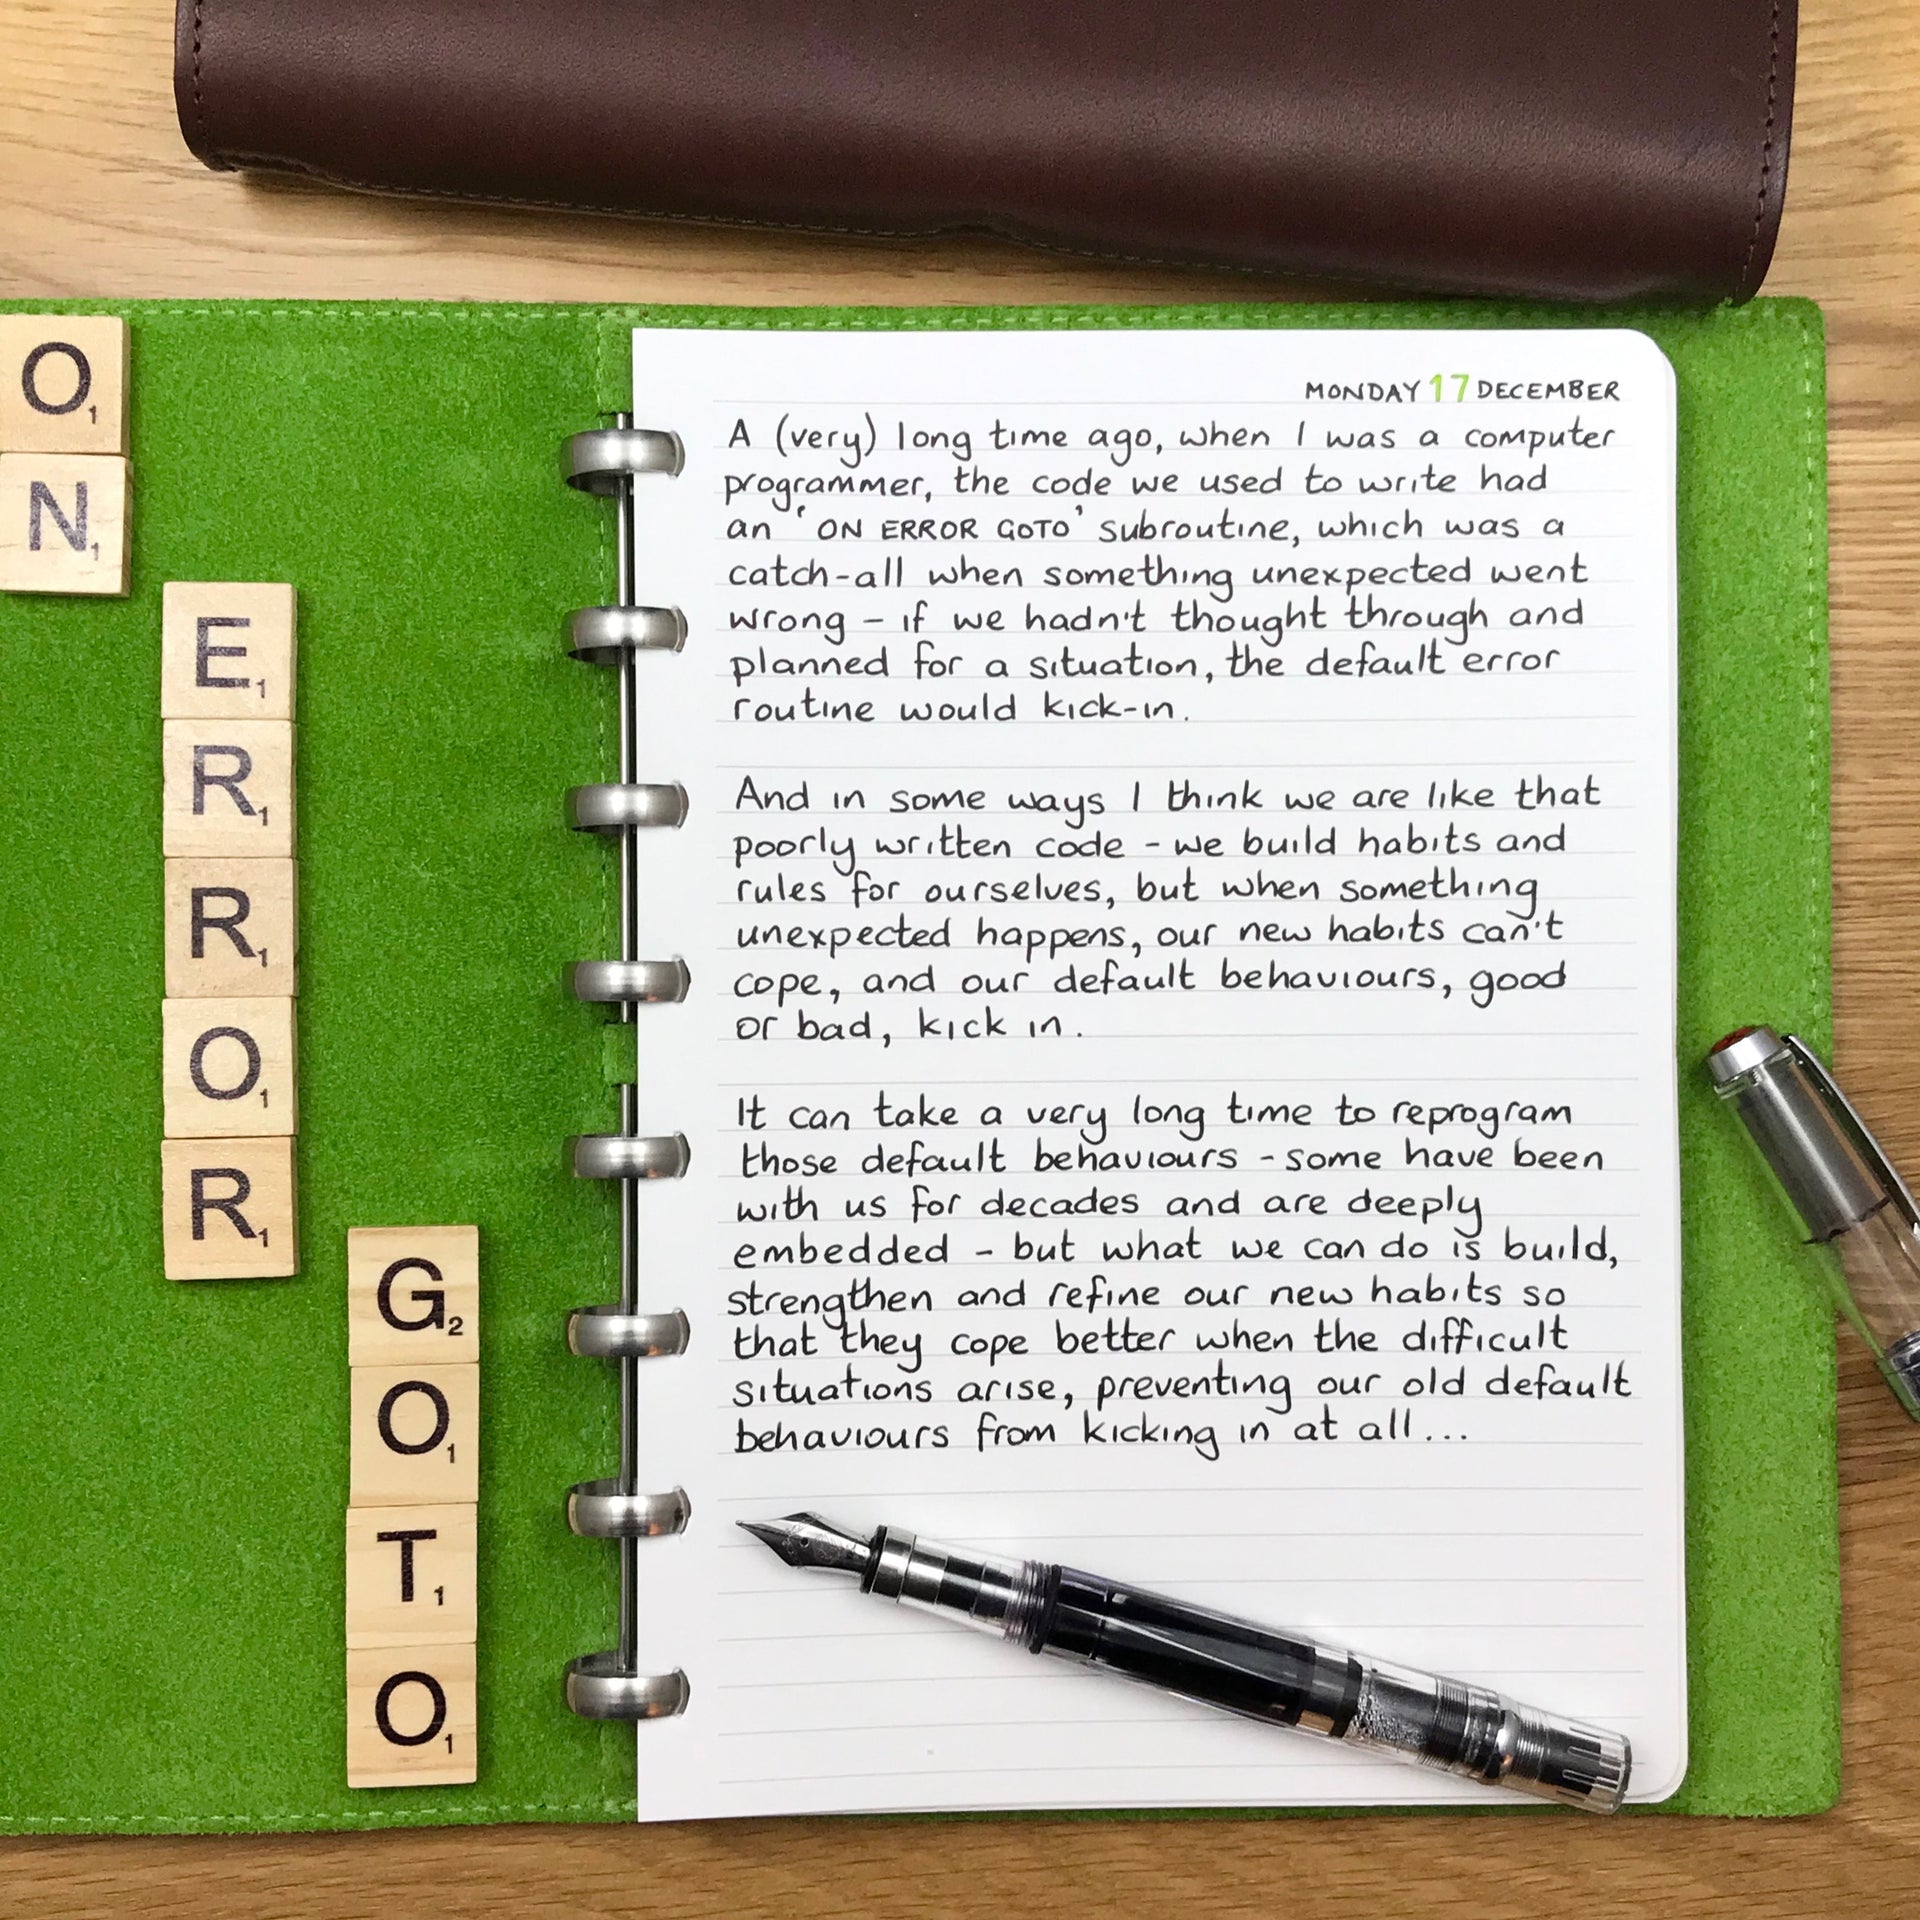 O1
N1
E1
R1
R1
O1
R1
G2
O1
T1
O1
MONDAY 17 DECEMBER
A (very) long time ago, when I was a computer
programmer, the code we used to write had
an 'ON ERROR GOTO' subroutine, which was a
catch-all when something unexpected went
wrong - if we hadn't thought through and
planned for a situation, the default error
routine would kick-in.
And in some ways I think we are like that
poorly written code - we build habits and
rules for ourselves, but when something
unexpected happens, our new habits can't
cope, and our default behaviours, good
or bad, kick in.
It can take a very long time to reprogram
those default behaviours - some have been
with us for decades and are deeply
embedded - but what we can do is build,
strengthen and refine our new habits so
that they cope better when the difficult
situations arise, preventing our old default
behaviours from kicking in at all...